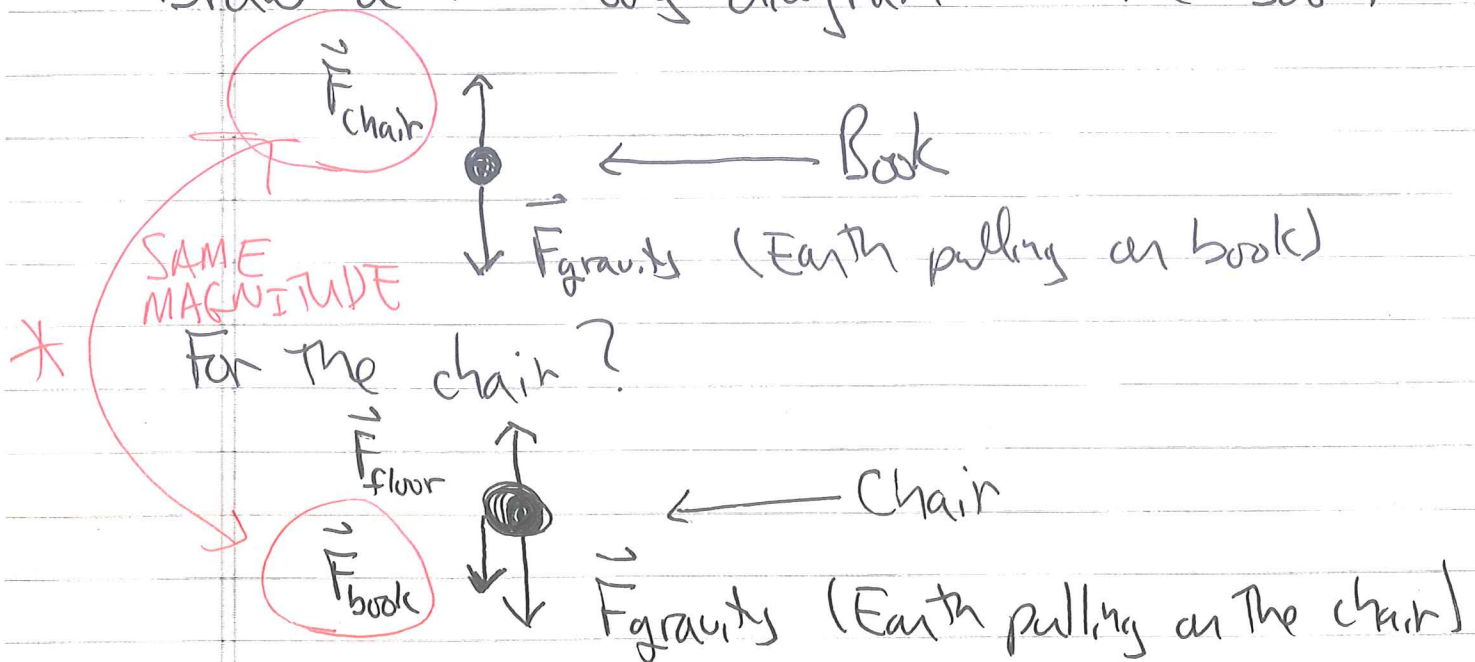 F chair
Book
F gravity (Earth pulling on book)
SAME
MAGNITUDE
*
For the chair?
F floor
Chair
F book
F gravity (Earth pulling on the chair)